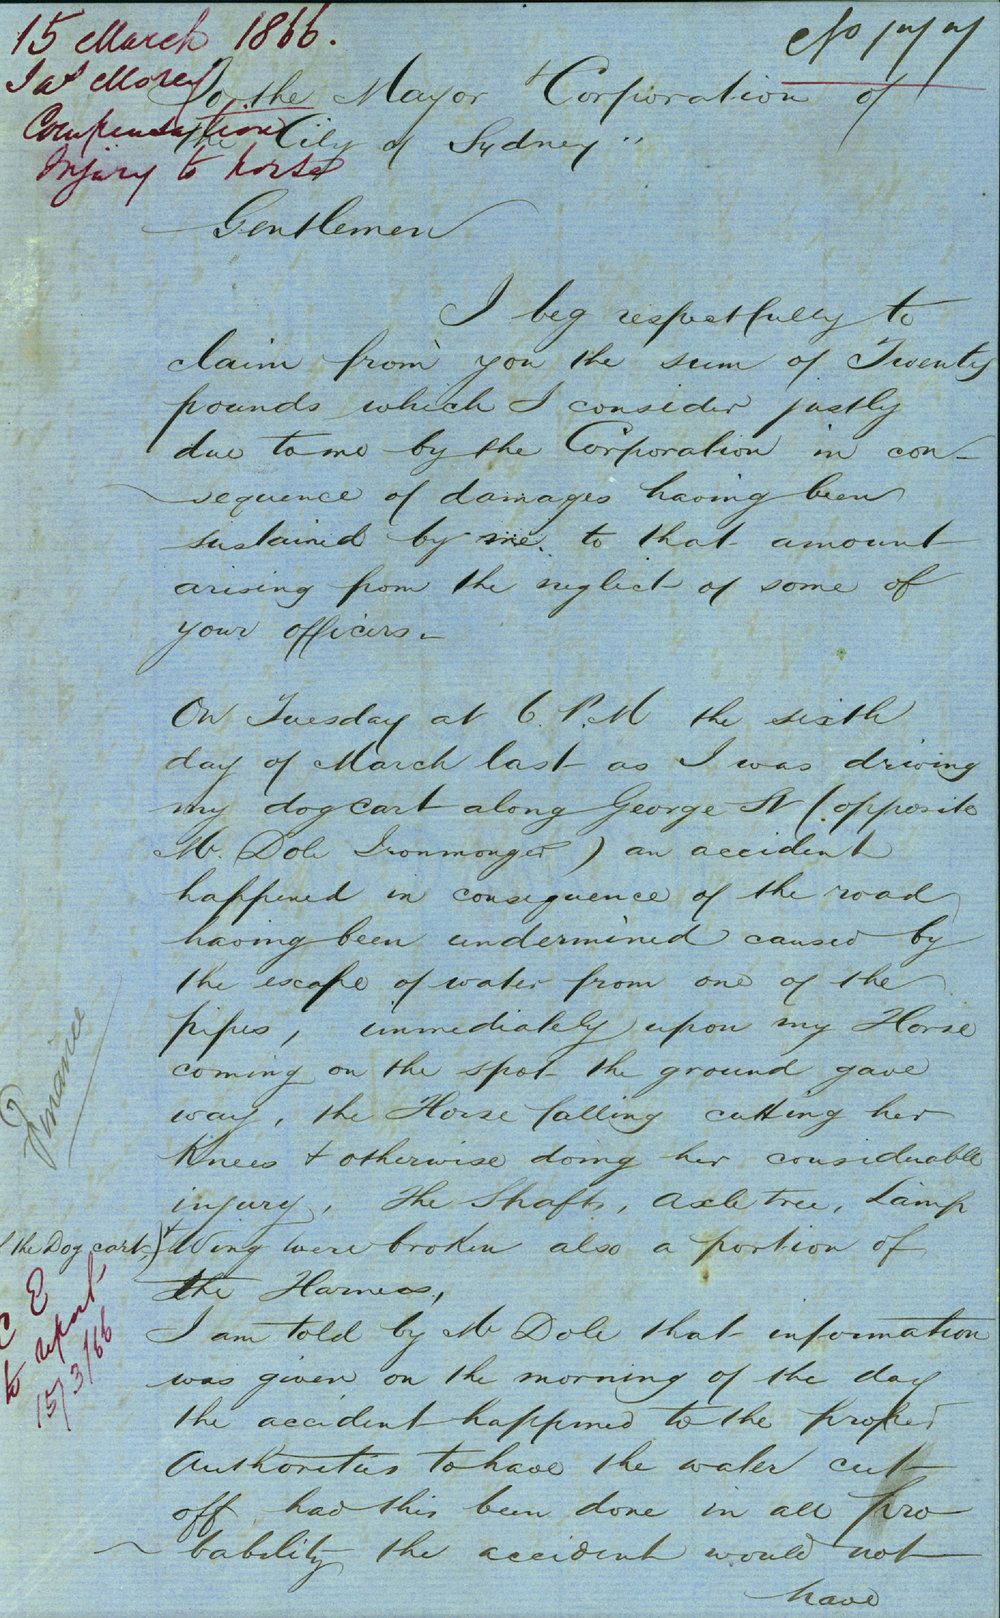 15 March 1866.
Jas Morey
Compensation
Injury to horse
To the Mayor & Corporation of
the City of Sydney"
Gentlemen
I beg respectfully to
claim from you the sum of Twenty
pounds which I consider justly
due to me by the Corporation in con-
sequence of damages having been
sustained by me to that amount
arising from the neglect of some of
your officers.
On Tuesday at 6 P.M the sixth
day of March last as I was driving
my dog cart along George St (opposite
Mr. Dole Ironmonger) an accident
happened in consequence of the road
having been undermined caused by
the escape of water from one of the
pipes, immediately upon my Horse
coming on the spot the ground gave
way, the Horse falling cutting her
Knees & otherwise doing her considerable
injury, the Shafts, axle tree, Lamp
(the Dog cart) & Wing were broken also a portion of
the Harness,
I am told by Mr Dole that information
was given on the morning of the day
the accident happened to the proper
Authorities to have the water cut
off had this been done in all pro-
bability the accident would not
have
Finance
C E
to report
15/3/66